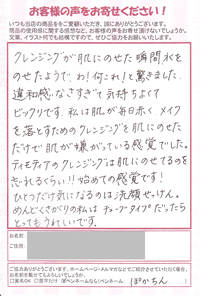 お客様の声をお寄せください！
いつも当店の商品をご愛顧いただき、誠にありがとうございます。
商品の使用感に関する感想など、お客様の声をお寄せ頂けないでしょうか。
文章、イラスト何でも結構ですので、ぜひご協力をお願いいたします。
クレンジングが肌にのせた瞬間水を
のせたようでわ!何これ!と驚きました。
違和感なさすぎて気持ちよくて
ビックリです。私は肌が毎日赤く、メイク
を落とすためのクレンジングを肌にのせた
だけで肌が嫌がっている感覚でした。
ティモティアのクレンジングは肌にのせてるのを
忘れるくらい!!始めての感覚です!
ひとつだけ気になるのは洗顔せっけん。
めんどくさがりの私は チューブタイプだったら
とってもうれしいです。
お名前：
ご住所：
ご協力ありがとうございます。ホームページ・メルマガなどでご紹介させていただく場合
お名前を載せてもよろしいでしょうか？
□実名OK □苗字だけ □ペンネームなら（ペンネーム： ぽかちん ）